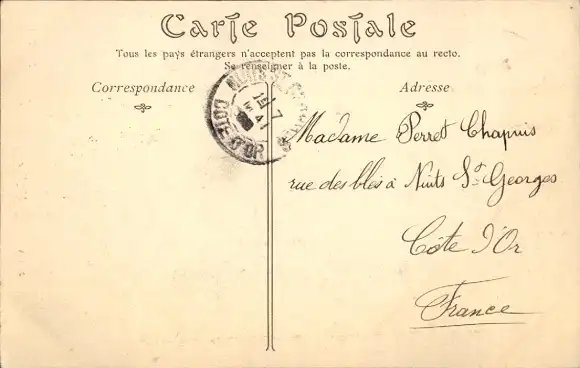 Carte Postale
Tous les pays étrangers n'acceptent pas la correspondance au recto.
Se renseigner à la poste.
Correspondance
Adresse
NUITS-ST-
COTE D'OR
Madame Perret Chapuis
rue des blés à Nuits St Georges
Côte d'Or
France